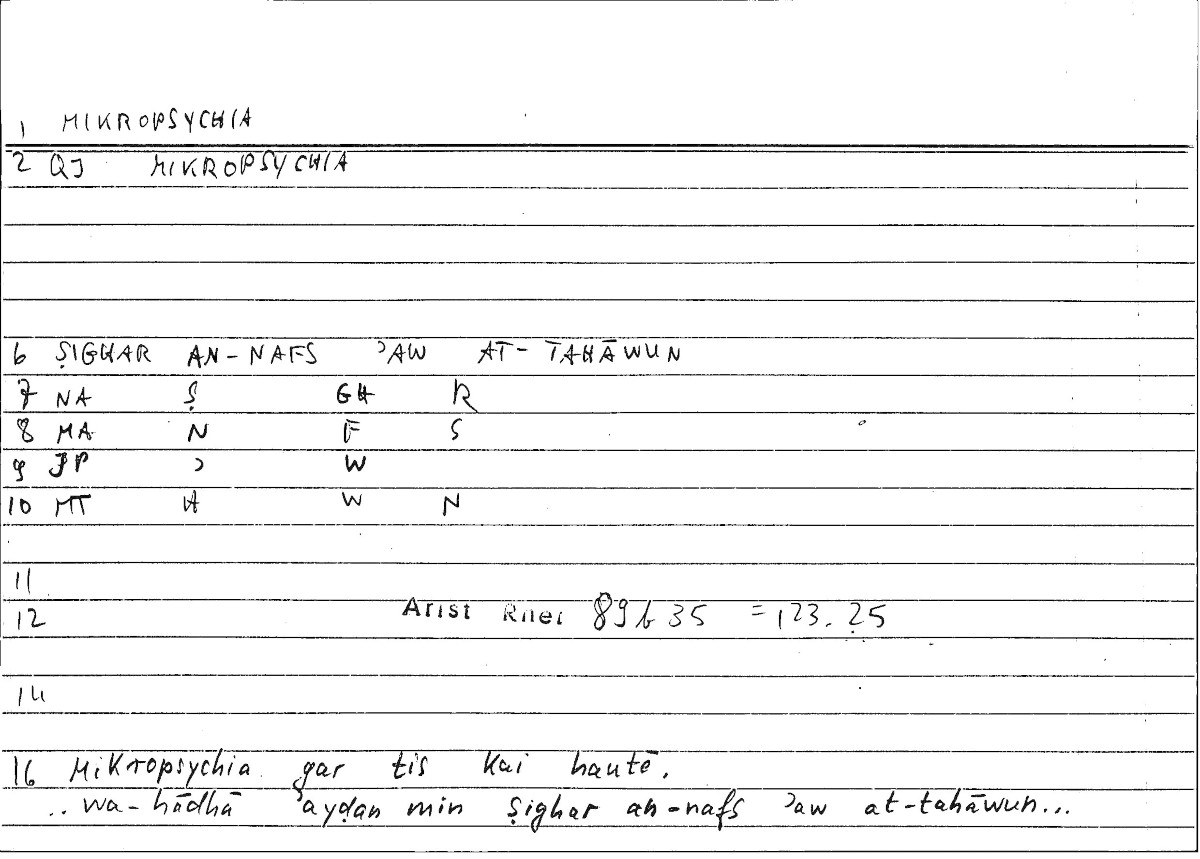 1 MIKROPSYCHIA
2 QJ MIKROPSYCHIA
6 ṢIGHAR AN-NAFS ʾAW AT-TAHĀWUN
7 NA Ṣ GH R
8 MA N F S
9 JP ʾ W
10 MT H W N
11
12 Arist Rhet 89b35 =123.25
14
16 Mikropsychia gar tis kai hautē.
.. wa-hādhā ʾayḍan min ṣighar an-nafs ʾaw at-tahāwun...